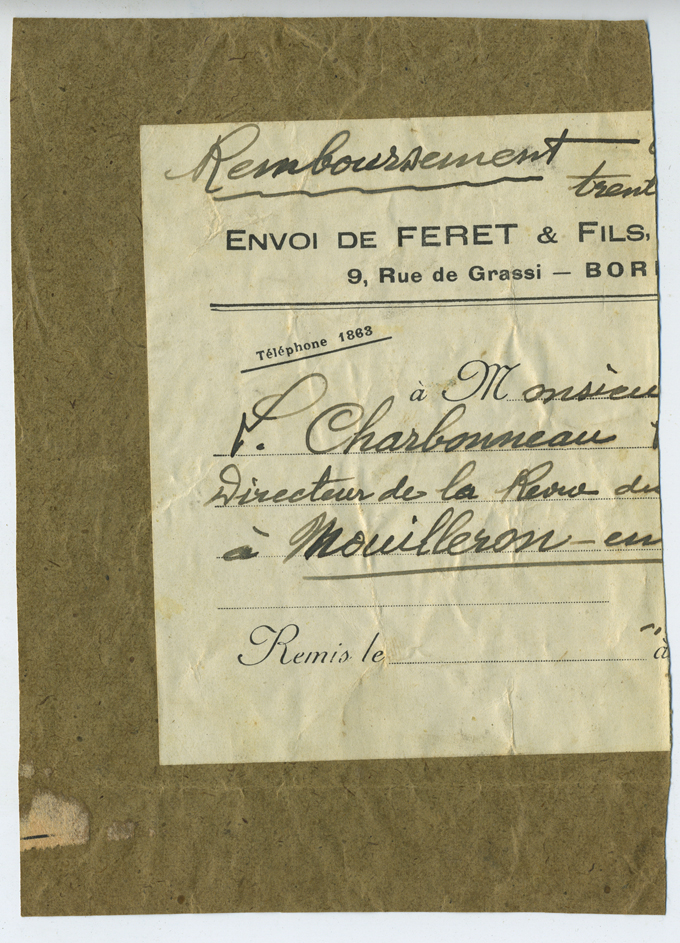 Remboursement
trent
ENVOI DE FERET & FILS,
9, Rue de Grassi — BOR
Téléphone 1863
à Monsieu
Charbonneau
Directeur de la Revue du
à Mouilleron-en
Remis le
à